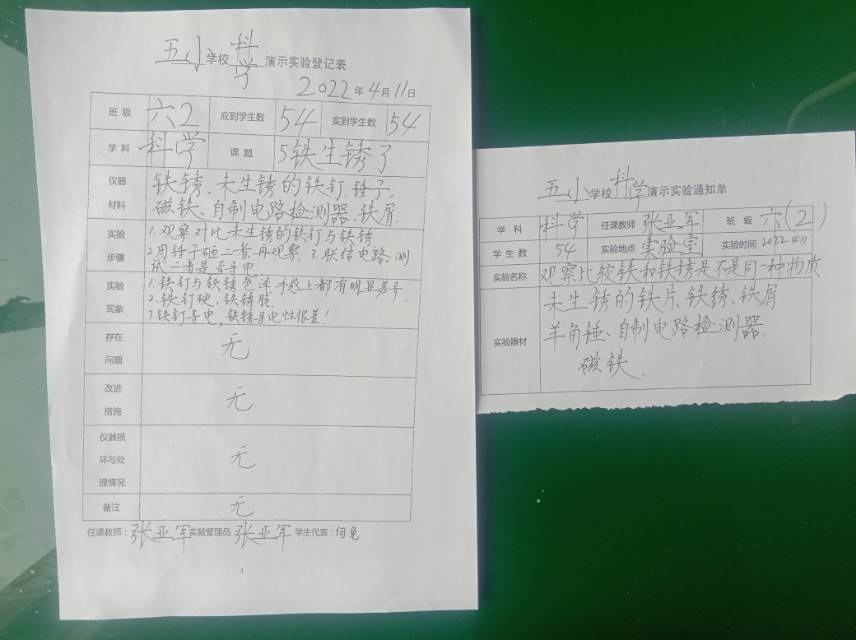 五小学校科学演示实验登记表
2022年4月11日
班级 六2 应到学生数 54 实到学生数 54
学科 科学 课题 5铁生锈了
仪器材料 铁锈、未生锈的铁钉、锤子、
磁铁、自制电路检测器、铁屑
实验步骤 1.观察对比未生锈的铁钉与铁锈
2用锤子砸二者再观察 3.联结电路,测
试二者是否导电
实验现象 1.铁钉与铁锈色泽手感上都有明显差异
2.铁钉硬,铁锈脆
3铁钉导电,铁锈导电性很差!
存在问题 无
改进措施 无
仪器损坏与处理情况 无
备注 无
任课教师:张亚军 实验管理员 张亚军 学生代表:何
3
五小学校科学演示实验通知单
学科 科学 任课教师 张亚军 班级 六(2)
学生数 54 实验地点 实验室 实验时间 2022.4.11
实验名称 观察比较铁和铁锈是不是同一种物质
实验器材 未生锈的铁片、铁锈、铁屑
羊角锤、自制电路检测器、
磁铁.